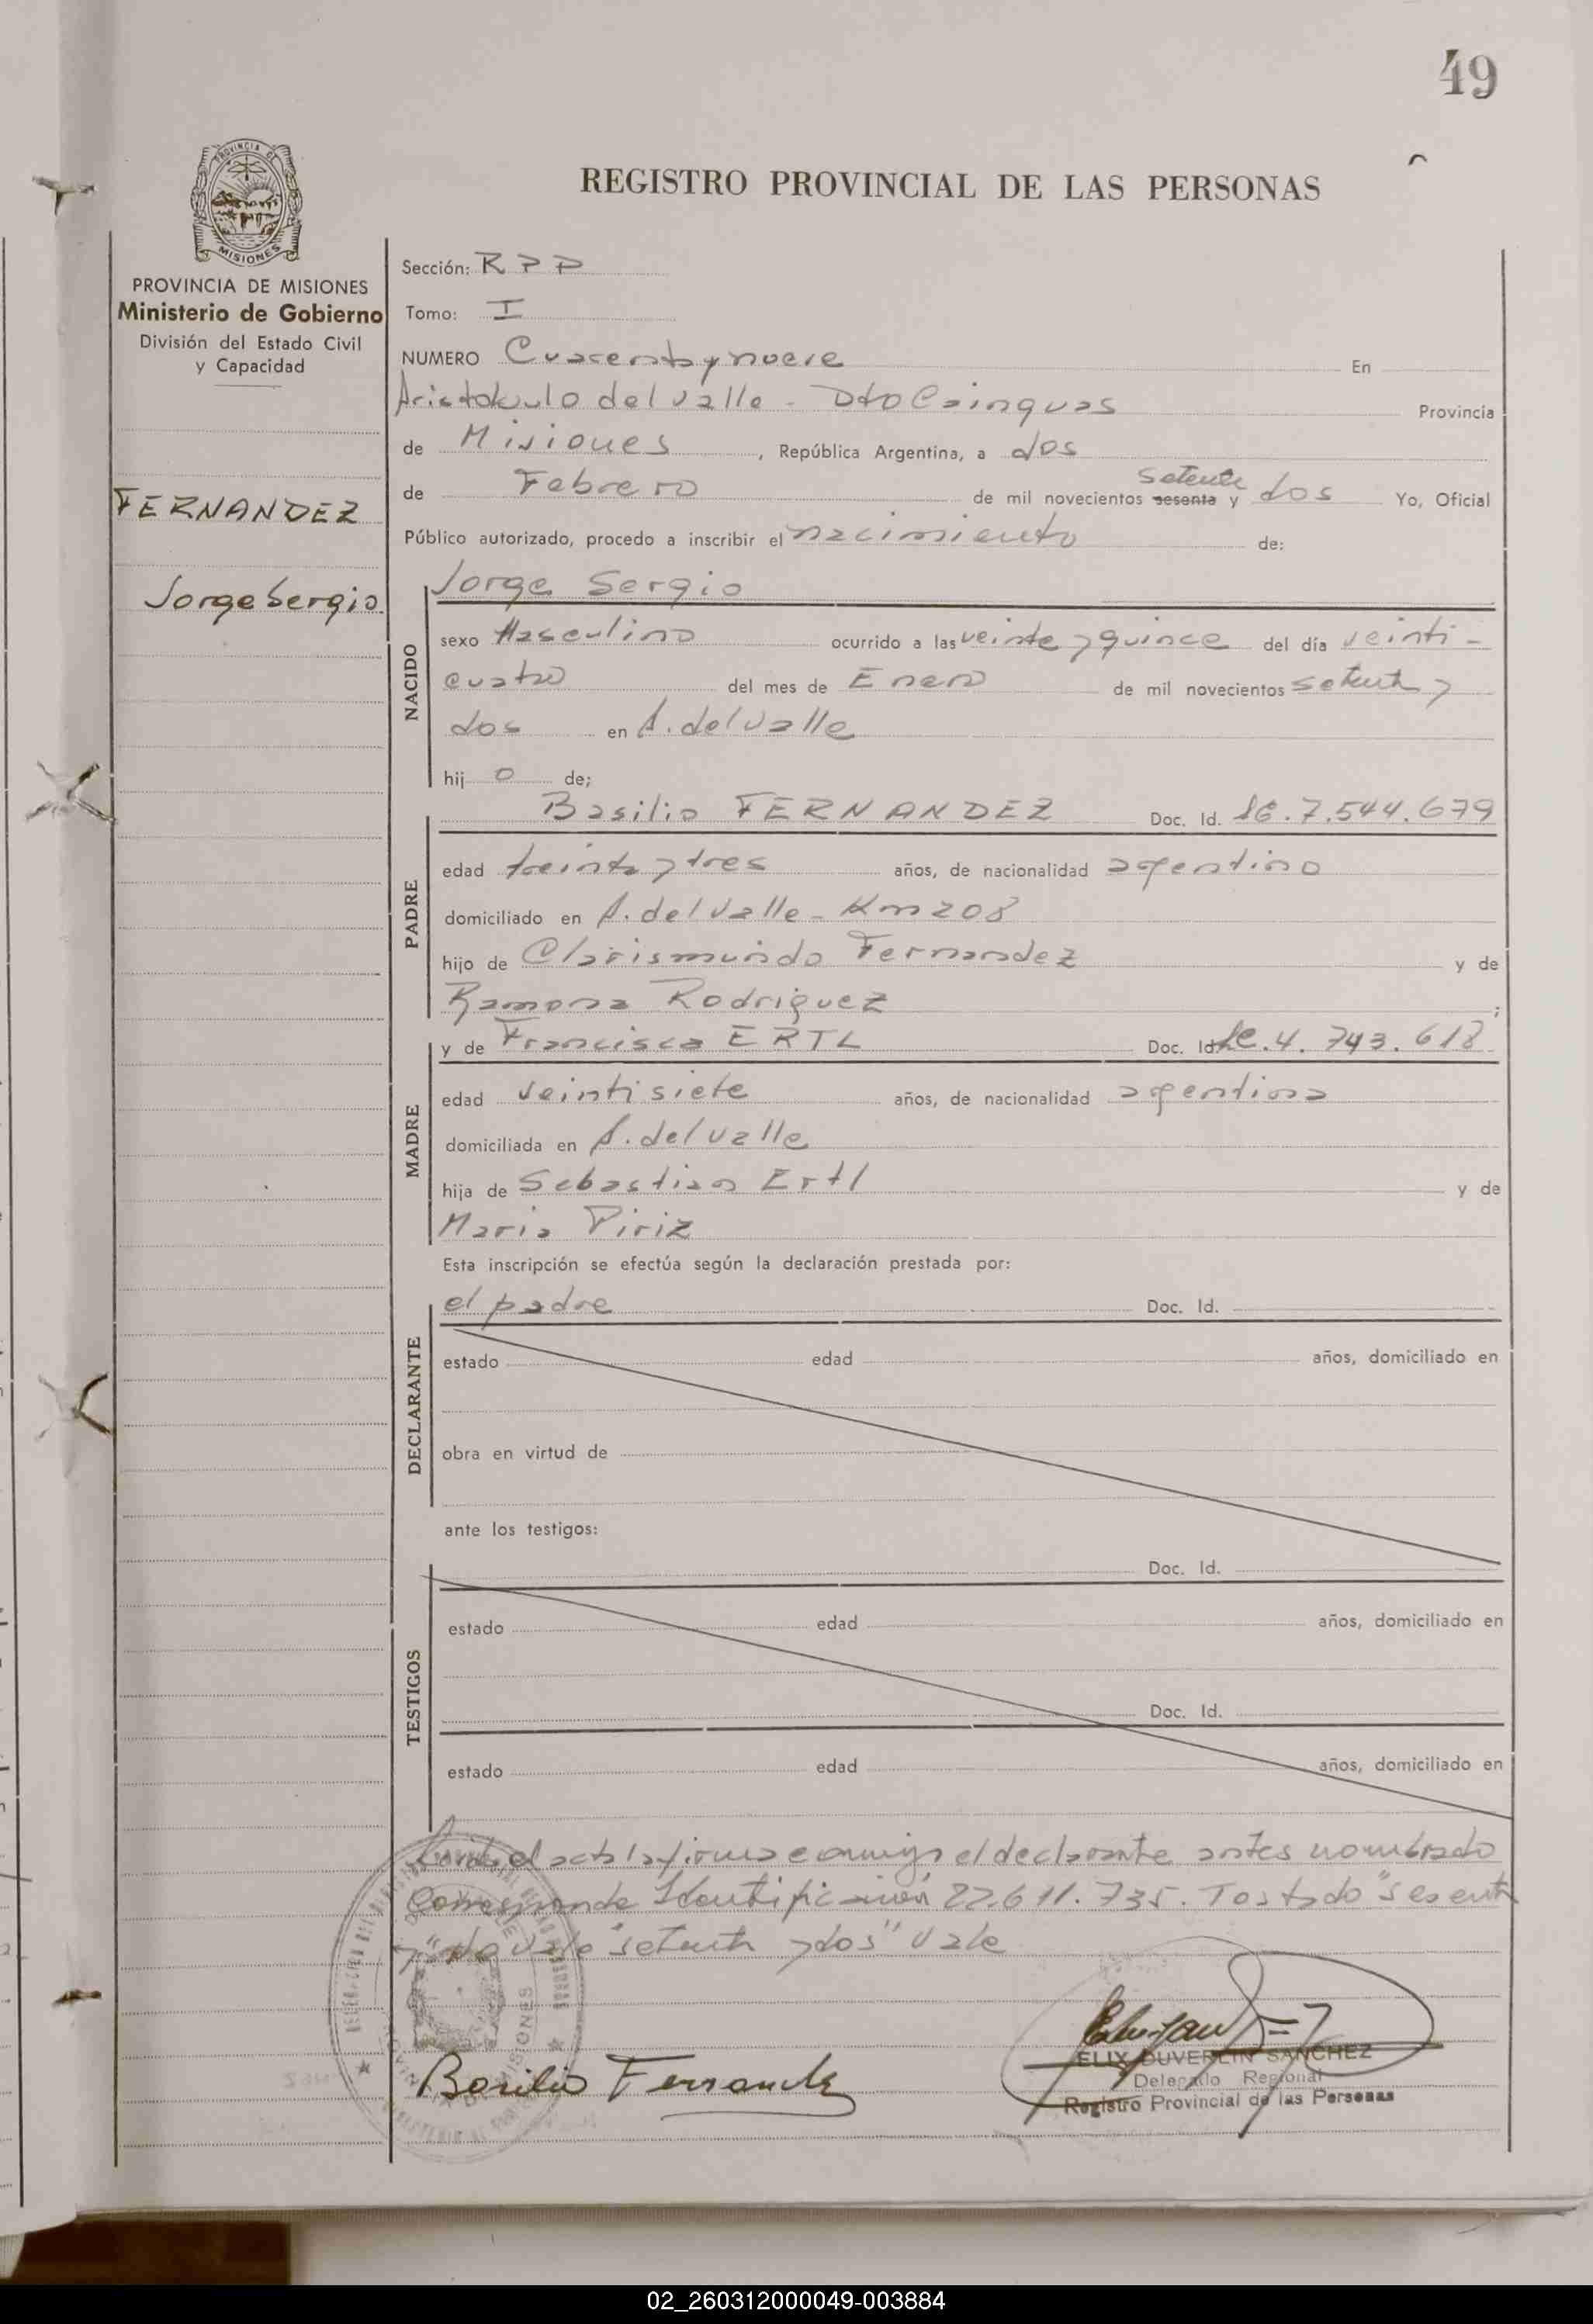 49
REGISTRO PROVINCIAL DE LAS PERSONAS
PROVINCIA DE MISIONES
Ministerio de Gobierno
División del Estado Civil
y Capacidad
FERNANDEZ
Jorge Sergio
Sección: R P P
Tomo: I
NUMERO Cuarenta y nueve En
Aristobulo del Valle - Dto Cainguas Provincia
de Misiones, República Argentina, a dos
setenta
de Febrero de mil novecientos sesenta y dos Yo, Oficial
Público autorizado, procedo a inscribir el nacimiento de:
Jorge Sergio
NACIDO
sexo Masculino ocurrido a las veinte y quince del día veinti-
cuatro del mes de Enero de mil novecientos setenta y
dos en A. del Valle
hij o de;
Basilio FERNANDEZ Doc. Id. LE. 7.544.679
PADRE
edad treinta y tres años, de nacionalidad argentino
domiciliado en A. del Valle - Km 208
hijo de Clarismundo Fernandez y de
Ramona Rodriguez ;
y de Francisca ERTL Doc. Id. Lc. 4. 743. 618
MADRE
edad veintisiete años, de nacionalidad argentina
domiciliada en A. del Valle
hija de Sebastian Ertl y de
Maria Piriz
Esta inscripción se efectúa según la declaración prestada por:
el padre Doc. Id.
DECLARANTE
estado edad años, domiciliado en
obra en virtud de
ante los testigos:
Doc. Id.
TESTIGOS
estado edad años, domiciliado en
Doc. Id.
estado edad años, domiciliado en
Leida el acta la firma conmigo el declarante antes nombrado
Corresponde Identificación 22.611.735. Tostado "sesenta
y" No vale "setenta y dos" Vale
Basilio Fernandez
ELIX DUVERLIN SANCHEZ
Delegado Regional
Registro Provincial de las Personas
02_260312000049-003884